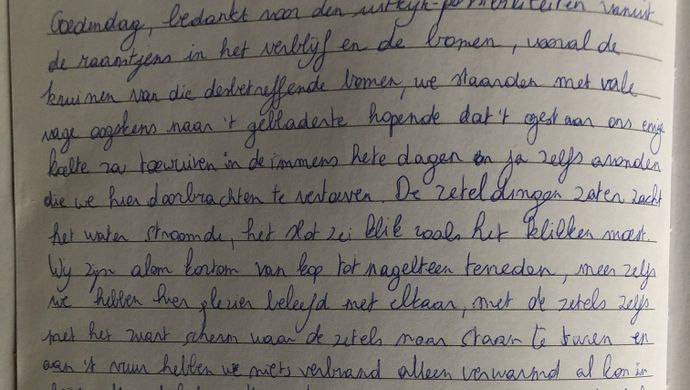 Goedendag, bedankt voor den uitkijk-possibiliteiten vanuit
de raamtjens in het verblijf en de bomen, vooral de
kruinen van die desbetreffende bomen, we staarden met vale
vage oogskens naar 't gebladerte hopende dat 't aan ons enige
koelte zou toewuiven in de immens hete dagen en ja zelfs avonden
die we hier doorbrachten te vertoeven. De zeteldingen zaten zacht
het water stroomde, het slot zei klik zoals het klikken moest.
Wij zijn alom kortom van kop tot nagelteen tevreden, meer zelfs
we hebben hier plezier beleefd met elkaar, met de zetels zelfs
met het zwart scherm waar de zetels naar staan te turen en
aan 't vuur hebben we niets verbrand alleen verwarmd al kon in